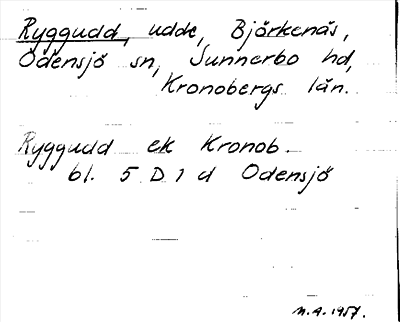 Ryggudd, udde, Björkenäs,
Odensjö sn, Sunnerbo hd,
Kronobergs län.
Ryggudd ek Kronob.
bl. 5 D 1 d Odensjö
M.A. 1957.